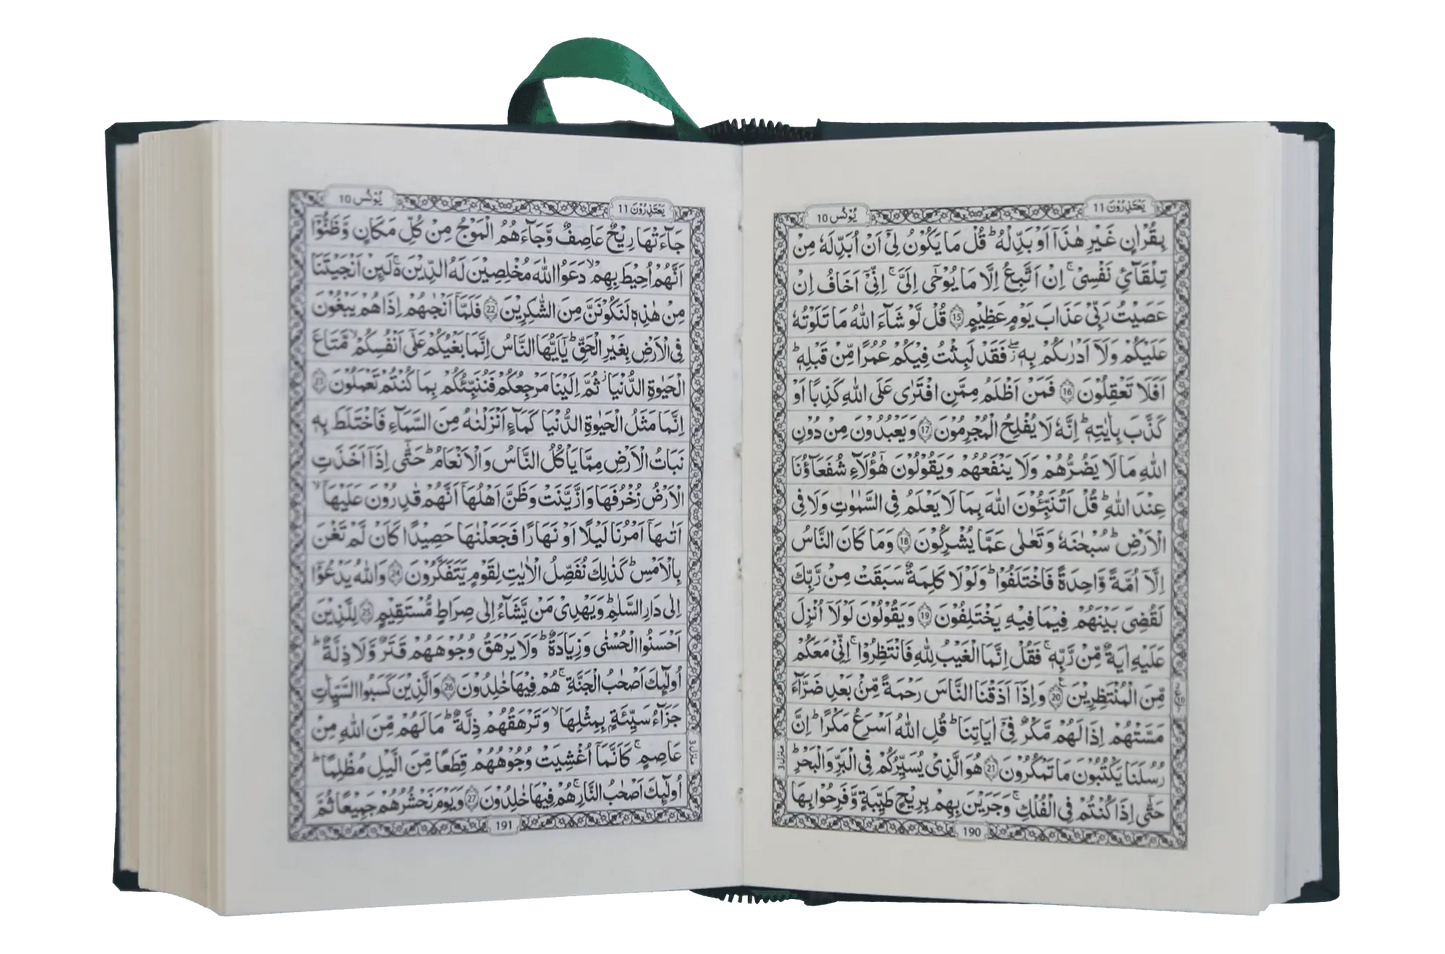 يَعْتَذِرُوْنَ 11
يُوْنُس 10
بِقُرْاٰنٍ غَيْرِ هٰذَاۤ اَوْ بَدِّلْهُ ؕ قُلْ مَا يَكُوْنُ لِيْۤ اَنْ اُبَدِّلَهٗ مِنْ
تِلْقَآئِ نَفْسِيْ ۚ اِنْ اَتَّبِعُ اِلَّا مَا يُوْحٰۤى اِلَيَّ ۚ اِنِّيْۤ اَخَافُ اِنْ
عَصَيْتُ رَبِّيْ عَذَابَ يَوْمٍ عَظِيْمٍ 15 قُلْ لَّوْ شَآءَ اللّٰهُ مَا تَلَوْتُهٗ
عَلَيْكُمْ وَلَاۤ اَدْرٰىكُمْ بِهٖ ۖ فَقَدْ لَبِثْتُ فِيْكُمْ عُمُرًا مِّنْ قَبْلِهٖ ؕ
اَفَلَا تَعْقِلُوْنَ 16 فَمَنْ اَظْلَمُ مِمَّنِ افْتَرٰى عَلَى اللّٰهِ كَذِبًا اَوْ
كَذَّبَ بِاٰيٰتِهٖ ؕ اِنَّهٗ لَا يُفْلِحُ الْمُجْرِمُوْنَ 17 وَيَعْبُدُوْنَ مِنْ دُوْنِ
اللّٰهِ مَا لَا يَضُرُّهُمْ وَلَا يَنْفَعُهُمْ وَيَقُوْلُوْنَ هٰۤؤُلَآءِ شُفَعَآؤُنَا
عِنْدَ اللّٰهِ ؕ قُلْ اَتُنَبِّئُوْنَ اللّٰهَ بِمَا لَا يَعْلَمُ فِي السَّمٰوٰتِ وَلَا فِي
الْاَرْضِ ؕ سُبْحٰنَهٗ وَتَعٰلٰى عَمَّا يُشْرِكُوْنَ 18 وَمَا كَانَ النَّاسُ
اِلَّاۤ اُمَّةً وَّاحِدَةً فَاخْتَلَفُوْا ؕ وَلَوْلَا كَلِمَةٌ سَبَقَتْ مِنْ رَّبِّكَ
لَقُضِيَ بَيْنَهُمْ فِيْمَا فِيْهِ يَخْتَلِفُوْنَ 19 وَيَقُوْلُوْنَ لَوْلَاۤ اُنْزِلَ
عَلَيْهِ اٰيَةٌ مِّنْ رَّبِّهٖ ۚ فَقُلْ اِنَّمَا الْغَيْبُ لِلّٰهِ فَانْتَظِرُوْا ۚ اِنِّيْ مَعَكُمْ
مِّنَ الْمُنْتَظِرِيْنَ 20 وَاِذَاۤ اَذَقْنَا النَّاسَ رَحْمَةً مِّنْۢ بَعْدِ ضَرَّآءَ
مَسَّتْهُمْ اِذَا لَهُمْ مَّكْرٌ فِيْۤ اٰيَاتِنَا ؕ قُلِ اللّٰهُ اَسْرَعُ مَكْرًا ؕ اِنَّ
رُسُلَنَا يَكْتُبُوْنَ مَا تَمْكُرُوْنَ 21 هُوَ الَّذِيْ يُسَيِّرُكُمْ فِي الْبَرِّ وَالْبَحْرِ ؕ
حَتّٰۤى اِذَا كُنْتُمْ فِي الْفُلْكِ ۚ وَجَرَيْنَ بِهِمْ بِرِيْحٍ طَيِّبَةٍ وَّفَرِحُوْا بِهَا
منزل 3
190
يَعْتَذِرُوْنَ 11
يُوْنُس 10
جَآءَتْهَا رِيْحٌ عَاصِفٌ وَّجَآءَهُمُ الْمَوْجُ مِنْ كُلِّ مَكَانٍ وَّظَنُّوْۤا
اَنَّهُمْ اُحِيْطَ بِهِمْ ۙ دَعَوُا اللّٰهَ مُخْلِصِيْنَ لَهُ الدِّيْنَ ۚ لَئِنْ اَنْجَيْتَنَا
مِنْ هٰذِهٖ لَنَكُوْنَنَّ مِنَ الشّٰكِرِيْنَ 22 فَلَمَّاۤ اَنْجٰىهُمْ اِذَا هُمْ يَبْغُوْنَ
فِي الْاَرْضِ بِغَيْرِ الْحَقِّ ؕ يٰۤاَيُّهَا النَّاسُ اِنَّمَا بَغْيُكُمْ عَلٰۤى اَنْفُسِكُمْ ۙ مَّتَاعَ
الْحَيٰوةِ الدُّنْيَا ؗ ثُمَّ اِلَيْنَا مَرْجِعُكُمْ فَنُنَبِّئُكُمْ بِمَا كُنْتُمْ تَعْمَلُوْنَ 23
اِنَّمَا مَثَلُ الْحَيٰوةِ الدُّنْيَا كَمَآءٍ اَنْزَلْنٰهُ مِنَ السَّمَآءِ فَاخْتَلَطَ بِهٖ
نَبَاتُ الْاَرْضِ مِمَّا يَاْكُلُ النَّاسُ وَالْاَنْعَامُ ؕ حَتّٰۤى اِذَاۤ اَخَذَتِ
الْاَرْضُ زُخْرُفَهَا وَازَّيَّنَتْ وَظَنَّ اَهْلُهَاۤ اَنَّهُمْ قٰدِرُوْنَ عَلَيْهَاۤ ۙ
اَتٰىهَاۤ اَمْرُنَا لَيْلًا اَوْ نَهَارًا فَجَعَلْنٰهَا حَصِيْدًا كَاَنْ لَّمْ تَغْنَ
بِالْاَمْسِ ؕ كَذٰلِكَ نُفَصِّلُ الْاٰيٰتِ لِقَوْمٍ يَّتَفَكَّرُوْنَ 24 وَاللّٰهُ يَدْعُوْۤا
اِلٰى دَارِ السَّلٰمِ ؕ وَيَهْدِيْ مَنْ يَّشَآءُ اِلٰى صِرَاطٍ مُّسْتَقِيْمٍ 25 لِلَّذِيْنَ
اَحْسَنُوا الْحُسْنٰى وَزِيَادَةٌ ؕ وَلَا يَرْهَقُ وُجُوْهَهُمْ قَتَرٌ وَّلَا ذِلَّةٌ ؕ
اُولٰٓئِكَ اَصْحٰبُ الْجَنَّةِ ۚ هُمْ فِيْهَا خٰلِدُوْنَ 26 وَالَّذِيْنَ كَسَبُوا السَّيِّاٰتِ
جَزَآءُ سَيِّئَةٍۭ بِمِثْلِهَا ۙ وَتَرْهَقُهُمْ ذِلَّةٌ ؕ مَا لَهُمْ مِّنَ اللّٰهِ مِنْ
عَاصِمٍ ۚ كَاَنَّمَاۤ اُغْشِيَتْ وُجُوْهُهُمْ قِطَعًا مِّنَ الَّيْلِ مُظْلِمًا ؕ
اُولٰٓئِكَ اَصْحٰبُ النَّارِ ۚ هُمْ فِيْهَا خٰلِدُوْنَ 27 وَيَوْمَ نَحْشُرُهُمْ جَمِيْعًا ثُمَّ
منزل 3
191